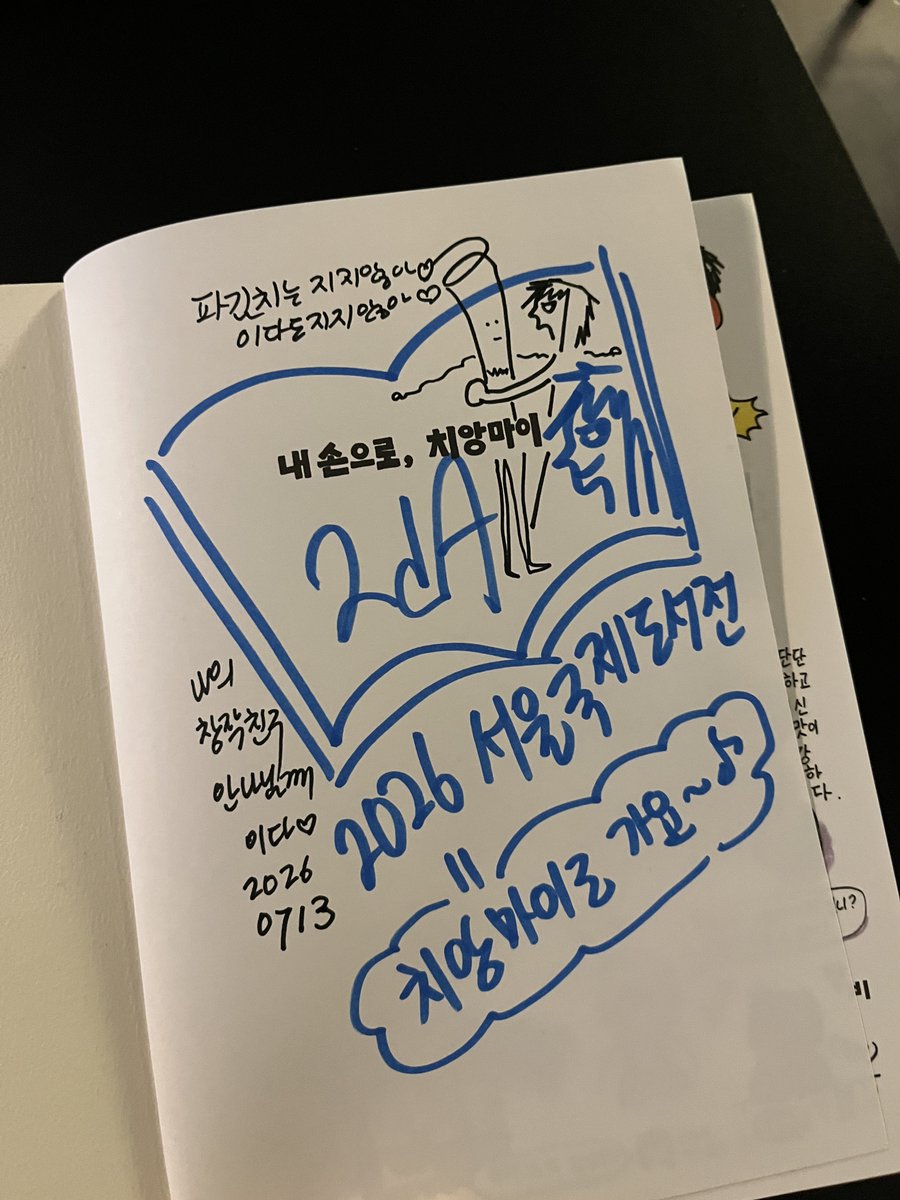 파김치는 지지않아♡
이다도지지 않아♡
내 손으로, 치앙마이
2dA
2026 서울국제도서전
치앙마이로 가요~♪
나의
창작친구
이다♡
2026
0713
단단
하고
신
맛이
강
하
다.
니?
비